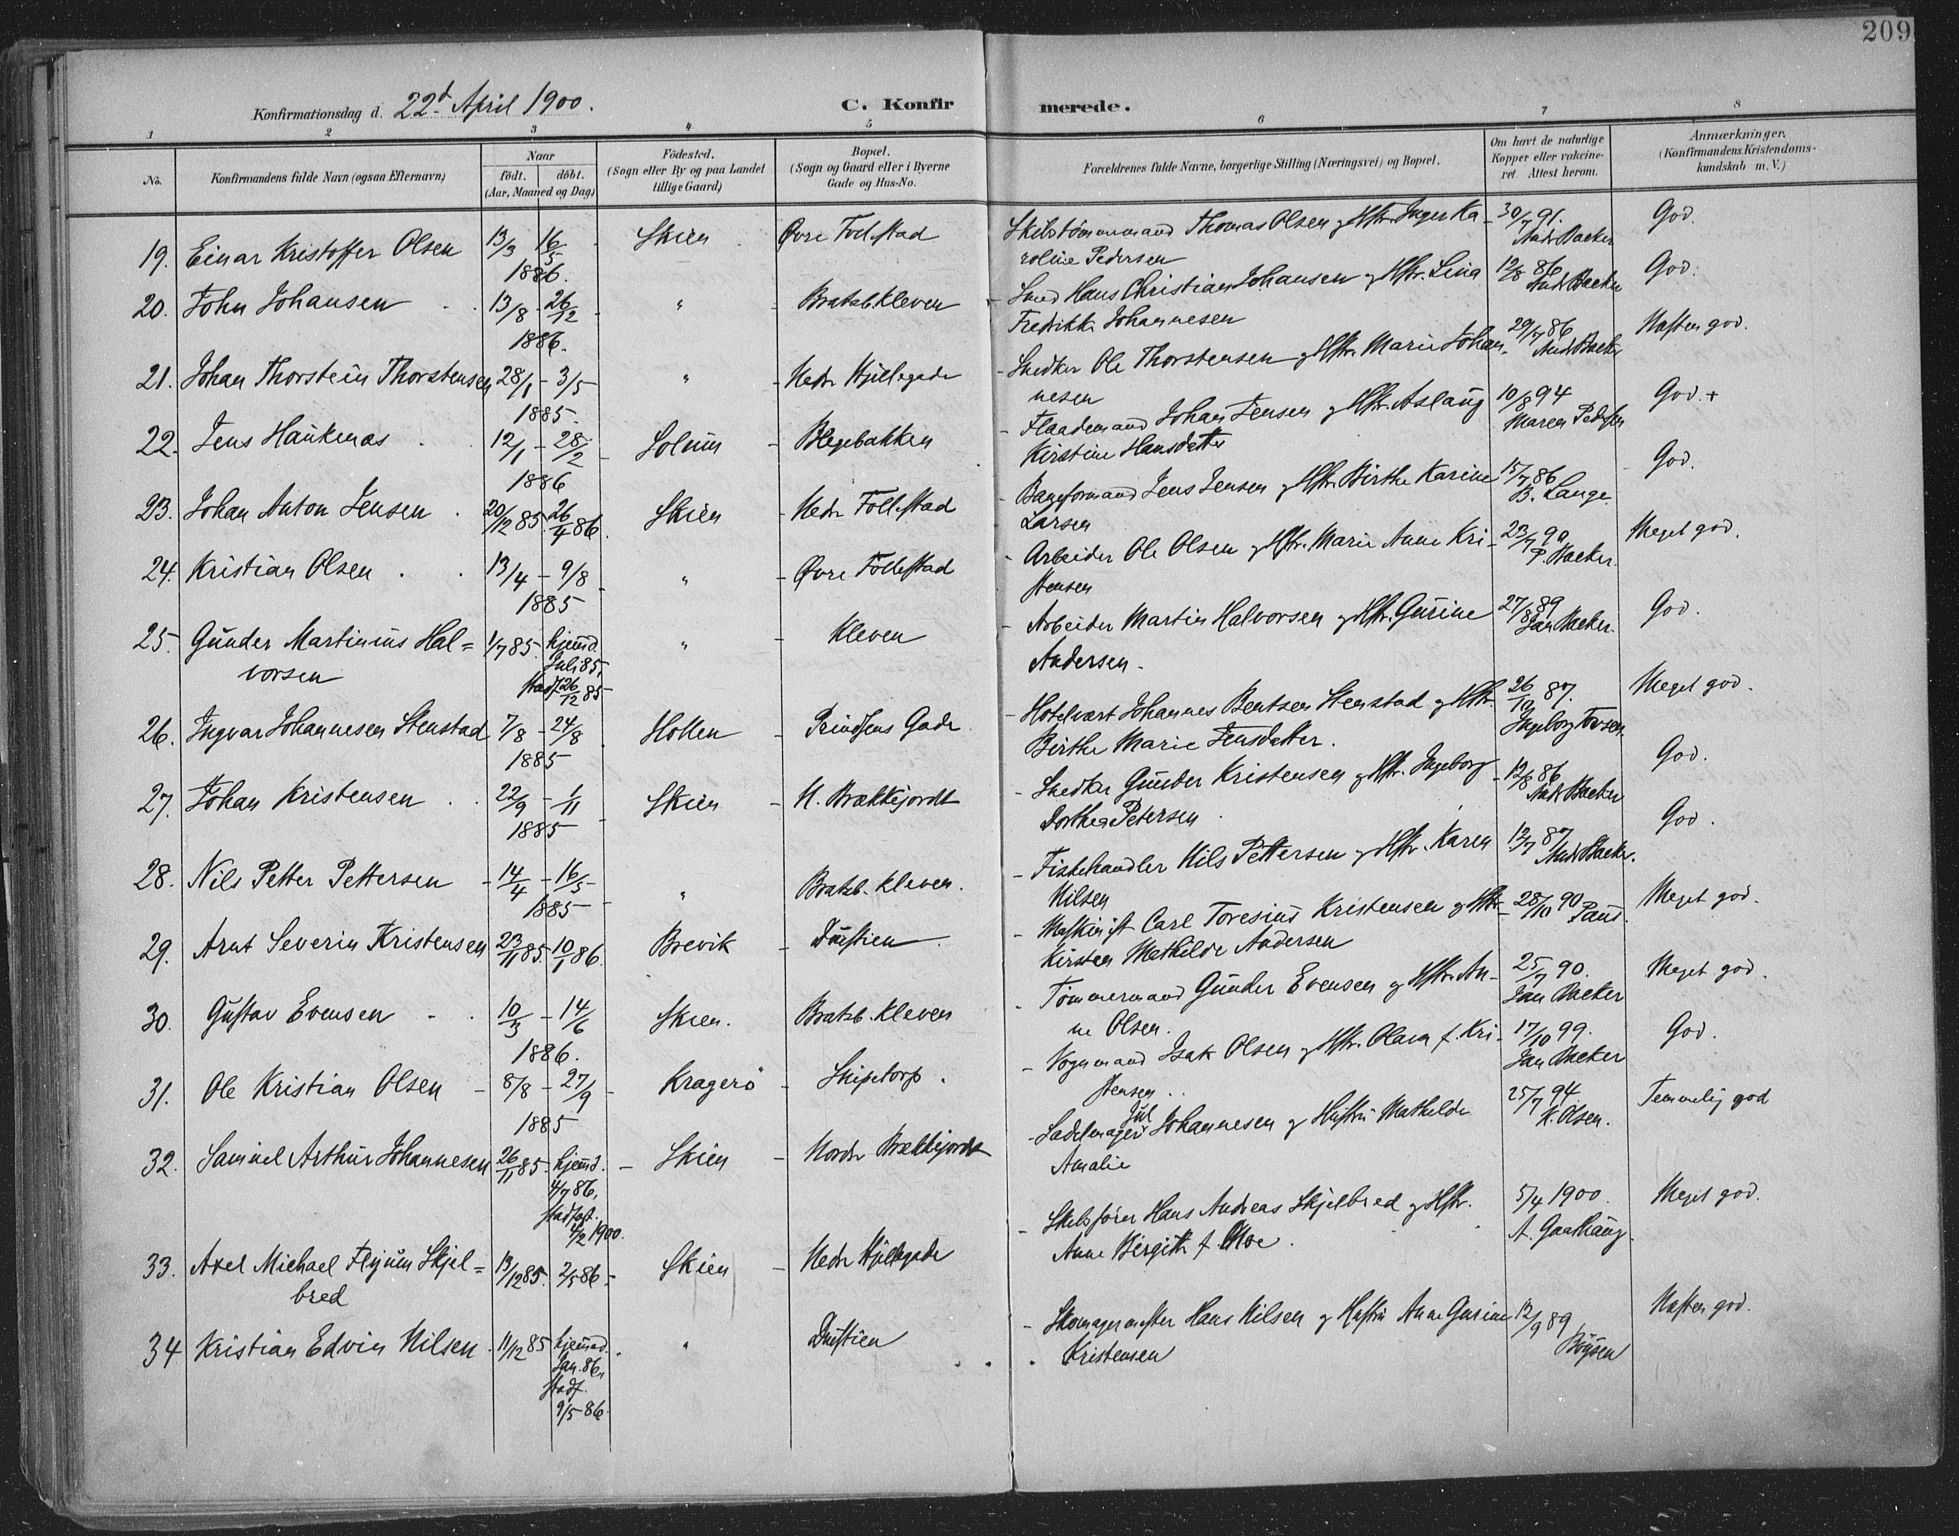 209
Konfirmationsdag d. 22d April 1900. C. Konfirmerede.
1 2 3 4 5 6 7 8
No. Konfirmandens fulde Navn (ogsaa Efternavn) Naar födt. döbt. (Aar, Maaned og Dag) Födested. (Sogn eller By og paa Landet tillige Gaard) Bopæl. (Sogn og Gaard eller i Byerne Gade og Hus-No. Forældrenes fulde Navne, borgerlige Stilling (Næringsvei) og Bopæl. Om havt de naturlige Kopper eller vakcineret. Attest herom. Anmærkninger. (Konfirmandens Kristendomskundskab m. V.)
19. Einar Kristoffer Olsen 13/3 16/5 1886. Skien Øvre Follestad Skibstømmermand Thomas Olsen og Hstr. Inger Ka-
roline Pedersen 30/7 91. Andr Backer God.
20. John Johansen 13/8 - 26/12 1886. " Bratsb. kleven Smed Hans Christian Johansen og Hstr. Lina
Fredrikke Johannesen 12/8 86 Andr Backer God.
21. Johan Thorstein Thorstensen 28/1 - 3/5 1885. " Nedr Hjellegade Snedker Ole Thorstensen og Hstr. Marie Johan-
nesen 29/7 86 Andr Backer Næsten god.
22. Jens Haukenæs 12/1 - 28/2 1886 Solum Blegebakken Flaademand Johan Jensen og Hstr. Aslaug
Kirstine Hansdatter 10/8 94 Maren Pedersen God. +
23. Johan Anton Jensen 20/12 85. 26/4 86. Skien Nedr Follestad Baneformand Jens Jensen og Hstr. Birthe Karine
Larsen 15/7 86 B. Lange God.
24. Kristian Olsen 13/4 - 9/8 1885 " Øvre Follestad Arbeider Ole Olsen og Hstr. Marie Anne Kri-
stensen 23/7 90 P. Backer. Meget god.
25. Gunder Martinius Hal=
vorsen 1/7 85. hjemd. Juli 85, stadf. 26/12 85 " Kleven Arbeider Martin Halvorsen og Hstr. Gurine
Andersen. 27/8 89 Jan Backer. God.
26. Ingvar Johannesen Stenstad 7/8 - 24/8 1885 Hollen Prindsens Gade Hotelvært Johannes Bentsen Stenstad og Hstr.
Birthe Marie Jensdatter. 26/10 87. Ingeborg Tovsen Meget god.
27. Johan Kristensen 22/9 - 1/11 1885 Skien N. Brækkejordet Snedker Gunder Kristensen og Hstr. Ingeborg
Dorthea Petersen 12/8 86 Andr Backer God.
28. Nils Petter Pettersen 14/4 - 16/5 1885 " Bratsb. kleven. Fiskehandler Nils Pettersen og Hstr. Karen
Nilsen 12/7 87 Andr Backer. God.
29. Arnt Severin Kristensen 23/11 85. 10/1 86. Brevik Duestien Maskinist Carl Toresius Kristensen og Hstr.
Kirsten Mathilde Andersen 28/10 90 Paus. Meget god.
30. Gustav Evensen 10/3 - 14/6 1886. Skien. Bratsb. kleven Tømmermand Gunder Evensen og Hstr. An-
ne Olsen. 25/7 90. Jan Backer Meget god.
31. Ole Kristian Olsen 8/8 - 27/9 1885 Kragerö Skistorp. Vognmand Isak Olsen og Hstr. Olava f. Kri-
stensen 17/10 99. Jan Backer God.
32. Samuel Arthur Johannesen 26/11 85 - hjemd. 4/7 86, stadfæst. 4/2 1900. Skien Nordr Brækkejordet Sadelmager Jul. Johannesen og Hustru Mathilde
Amalie 25/7 94 K. Olsen. Temmelig god
33. Axel Michael Flyum Skjel=
bred 13/12 85. 2/5 86 Skien Nedr Hjellegade Skibsfører Hans Andreas Skjelbred og Hstr.
Anne Birgith f. Moe. 5/4 1900. A. Gaathaug. Meget god.
34 Kristian Edvin Nilsen 11/12 85 hjemd. Jan. 86, stadf. 9/5 86. " Duestien Skomagermester Hans Nilsen og Hustru Anne Gurine
Kristensen 12/9 89, Boysen Næsten god.